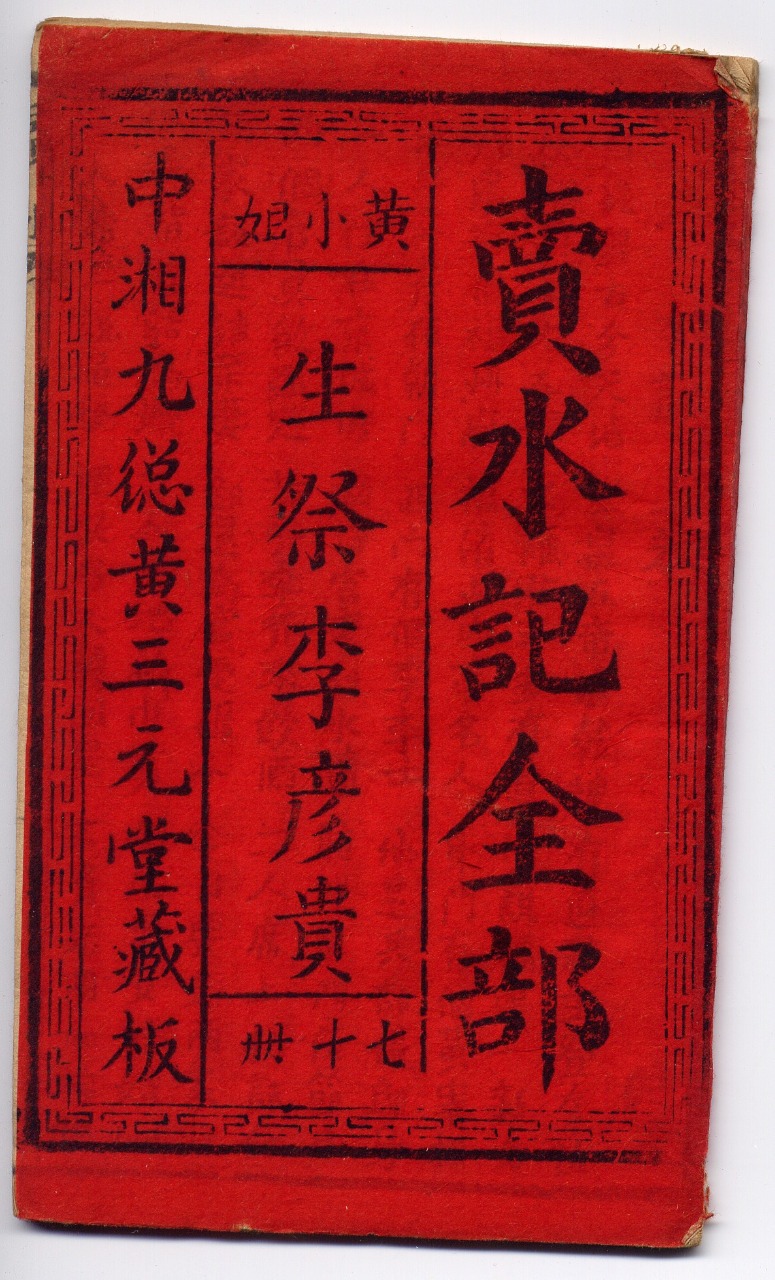 賣水記全部
黄小姐
生祭李彦貴
七十卌
中湘九總黄三元堂藏板